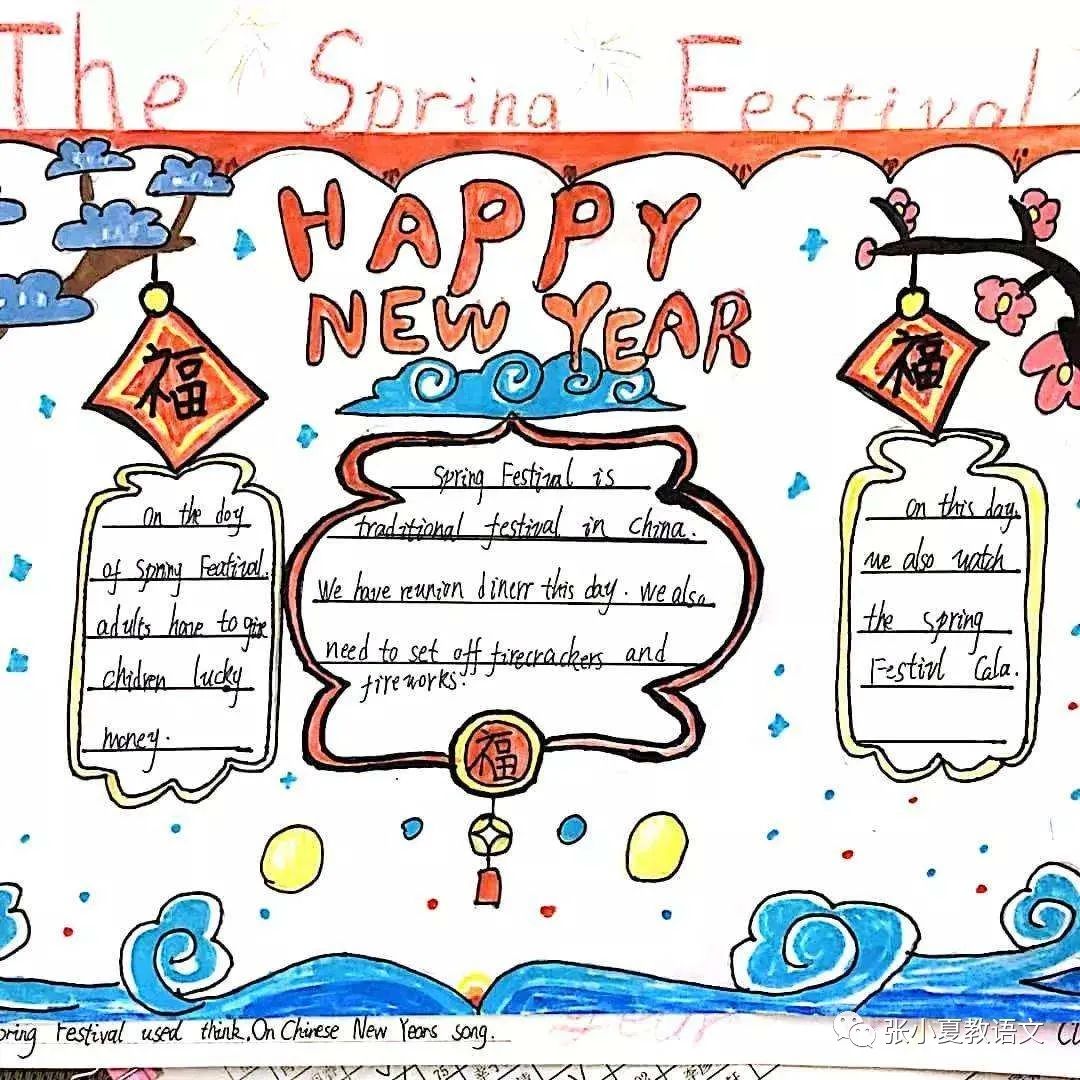 The Spring Festival
HAPPY
NEW YEAR
福
福
on the day
of Spring Featival.
adults have to give
chidren lucky
money.
Spring Festival is
traditional festival in China.
We have reunion dinerr this day. we also
need to set off firecrackers and
fireworks.
福
on this day.
we also watch
the spring
Festivl Gala.
pring Festival used think. On Chinese New Years song.
张小夏教语文